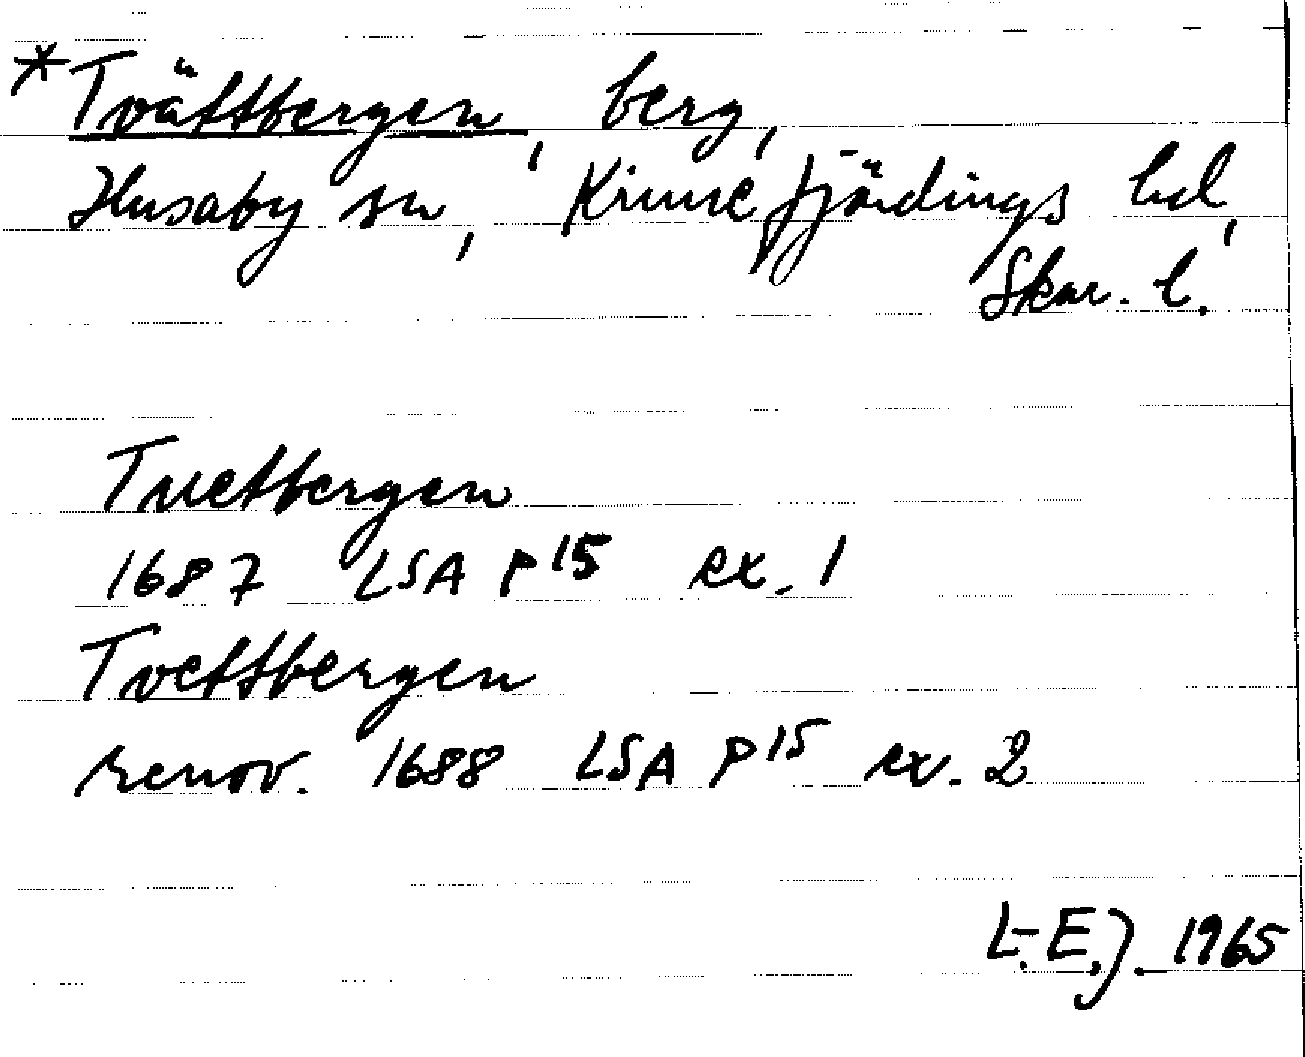 *Tvättbergen, berg,
Husaby sn, Kinnefjärdings hd,
Skar. l.
Tuetbergen
1687 LSA P15 ex. 1
Tvettbergen
renov. 1688 LSA P15 ex. 2
L.E.J. 1965